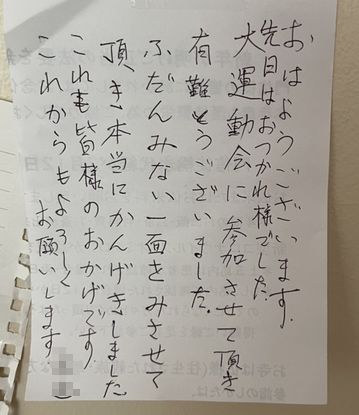 おはようございます.
先日はおつかれ様でした.
大運動会に参加させて頂き
有難とうございました.
ふだんみない一面をみさせて
頂き本当にかんげきしました
これも皆様のおかげです.
これからもよろしく
お願いします.